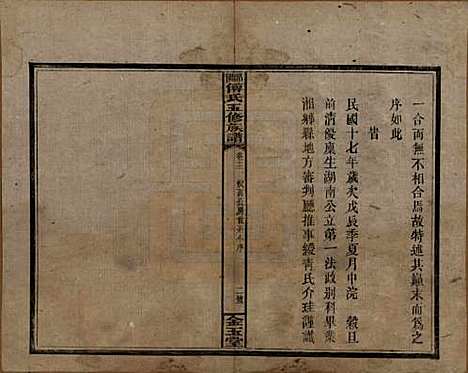 一合而無不相合焉故特述其顚末而爲之
序如此
旹
民國十七年歲次戊辰季夏月中浣 穀旦
前清優廩生湖南公立第一法政別科畢業
湘鄉縣地方審判廳推事綬青氏介珪謹識
傅氏五修族譜
卷十二
序
二號
金玉堂